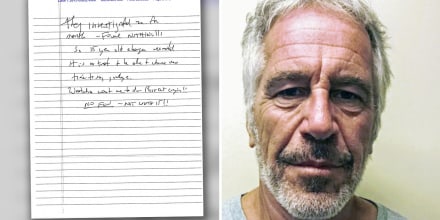 They investigated me for
month – Found NOTHING!!!
So 15 year old charges
It is a treat to be able to choose
time to say
want me to do – Bust out cryin!!
NO FUN – NOT WORTH IT!!